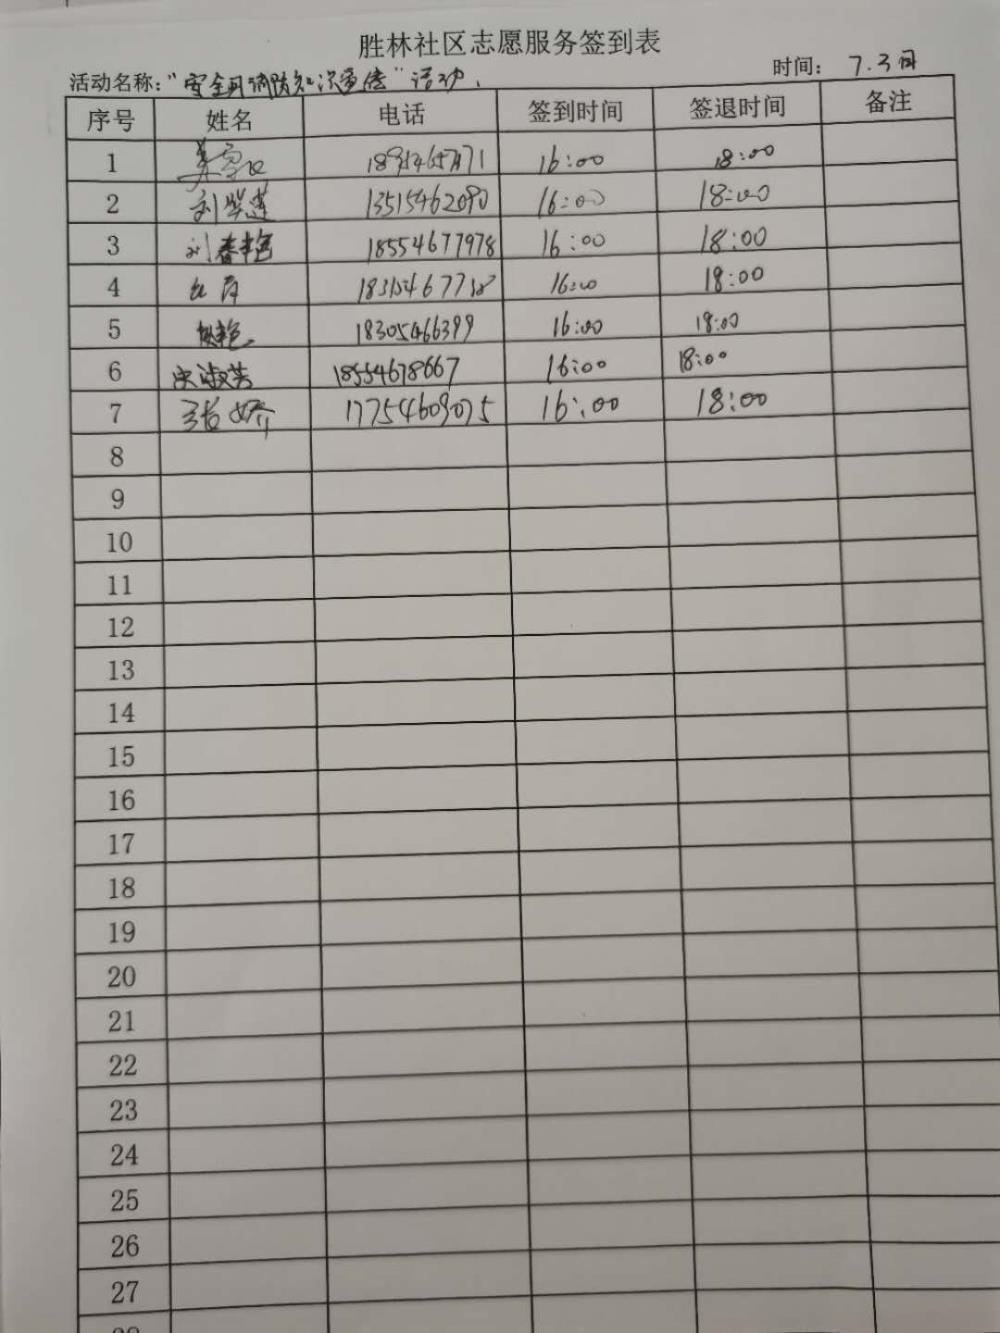 胜林社区志愿服务签到表
活动名称：“安全月消防知识宣传”活动. 时间： 7.3日
序号 姓名 电话 签到时间 签退时间 备注
1 16:00 18:00
2 刘翠莲 13515462090 16:00 18:00
3 刘春艳 18554677978 16:00 18:00
4 16:00 18:00
5 18305466399 16:00 18:00
6 宋淑芳 18554678667 16:00 18:00
7 张娇 17754609075 16:00 18:00
8
9
10
11
12
13
14
15
16
17
18
19
20
21
22
23
24
25
26
27
28